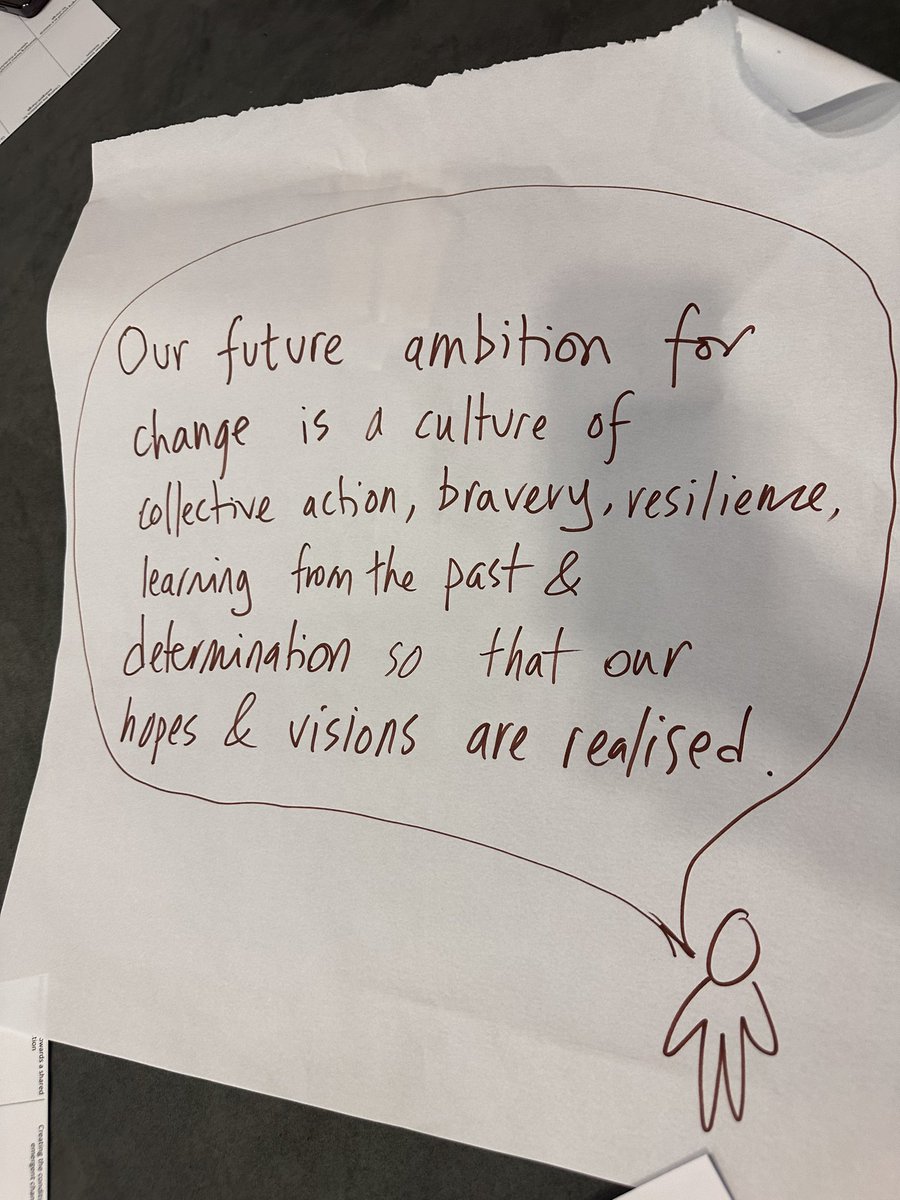 Our future ambition for
change is a culture of
collective action, bravery, resilience,
learning from the past &
determination so that our
hopes & visions are realised.
towards a shared
Creating the
emergent